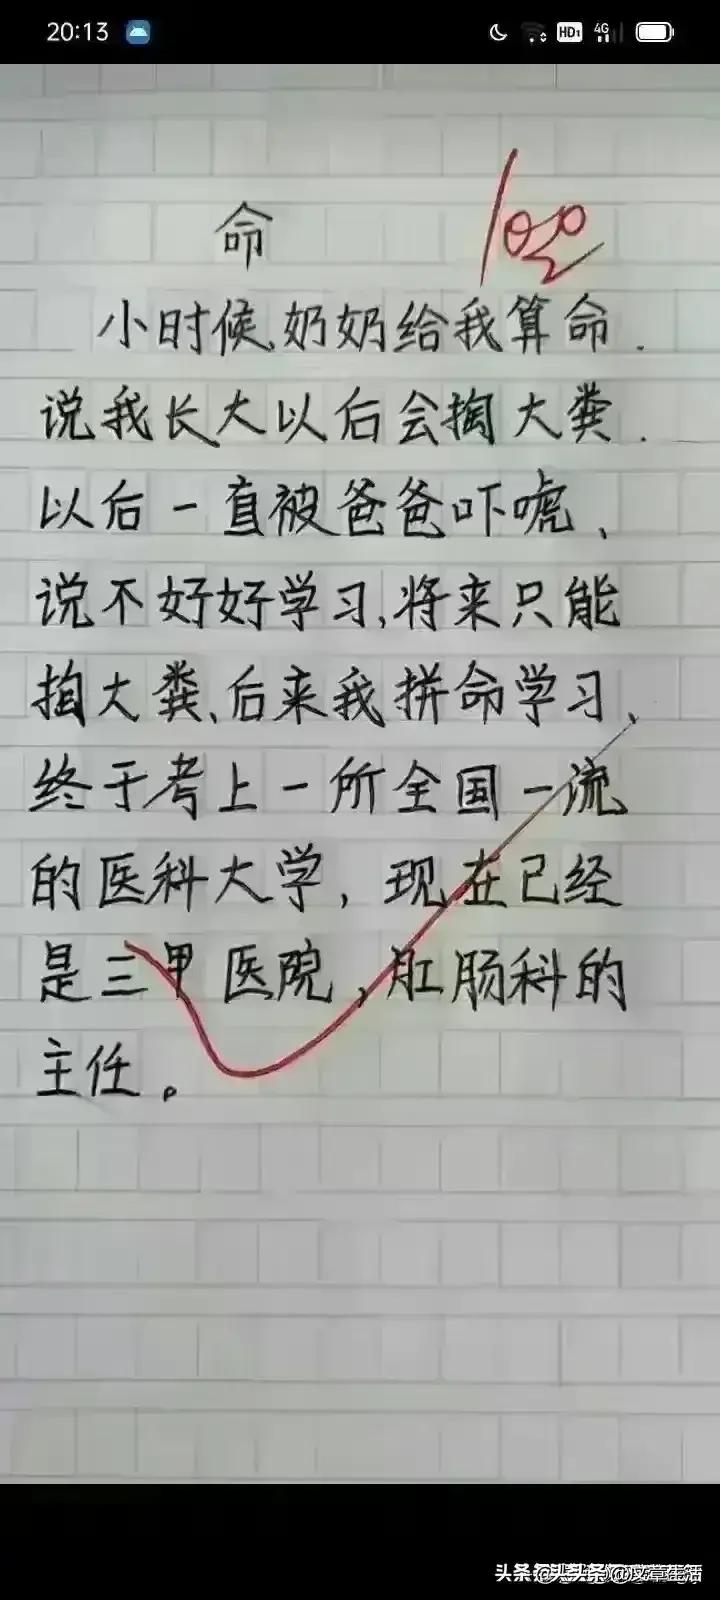 20:13
HD1 4G
命
100
小时候,奶奶给我算命.
说我长大以后会掏大粪.
以后一直被爸爸吓唬、
说不好好学习,将来只能
掏大粪、后来我拼命学习、
终于考上一所全国一流
的医科大学，现在已经
是三甲医院，肛肠科的
主任。
头条 @头条 @文章生活